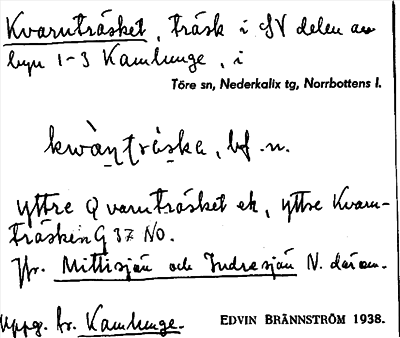 Kvarnträsket, träsk i SV delen av
byn 1-3 Kamlunge, i
Töre sn, Nederkalix tg, Norrbottens l.
kwàṇṭrạ̈ska, bf. n.
yttre Qvarnträsket ek, yttre Kvarn-
träsken G 37 NO.
Jfr. Mittisjän och Indresjän N. därom.
Uppg. fr. Kamlunge.
EDVIN BRÄNNSTRÖM 1938.